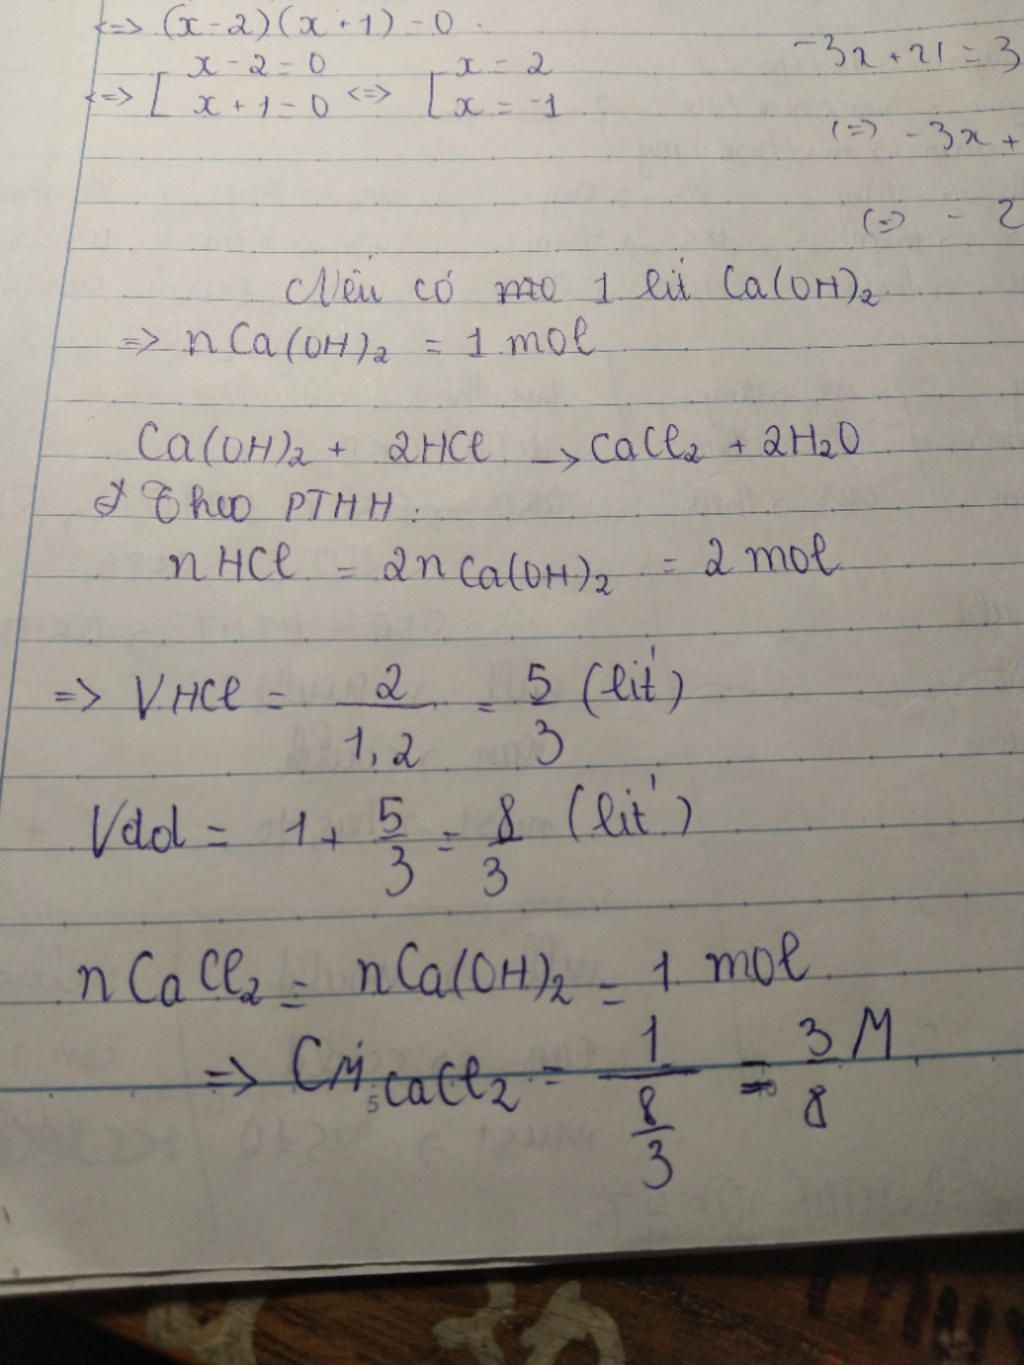 <=> (x-2)(x+1)=0.
-3x+21=3
<=> [ x-2=0 <=> [ x=2
x+1=0 x=-1
(=) -3x+
(=) - 2
Nếu có 1 lít Ca(OH)2
=> nCa(OH)2 = 1 mol
Ca(OH)2 + 2HCl -> CaCl2 + 2H2O
Theo PTHH:
nHCl = 2nCa(OH)2 = 2 mol
=> VHCl = 2/1,2 = 5/3 (lít)
Vdd = 1 + 5/3 = 8/3 (lít)
nCaCl2 = nCa(OH)2 = 1 mol
=> CM CaCl2 = 1/(8/3) = 3/8 M